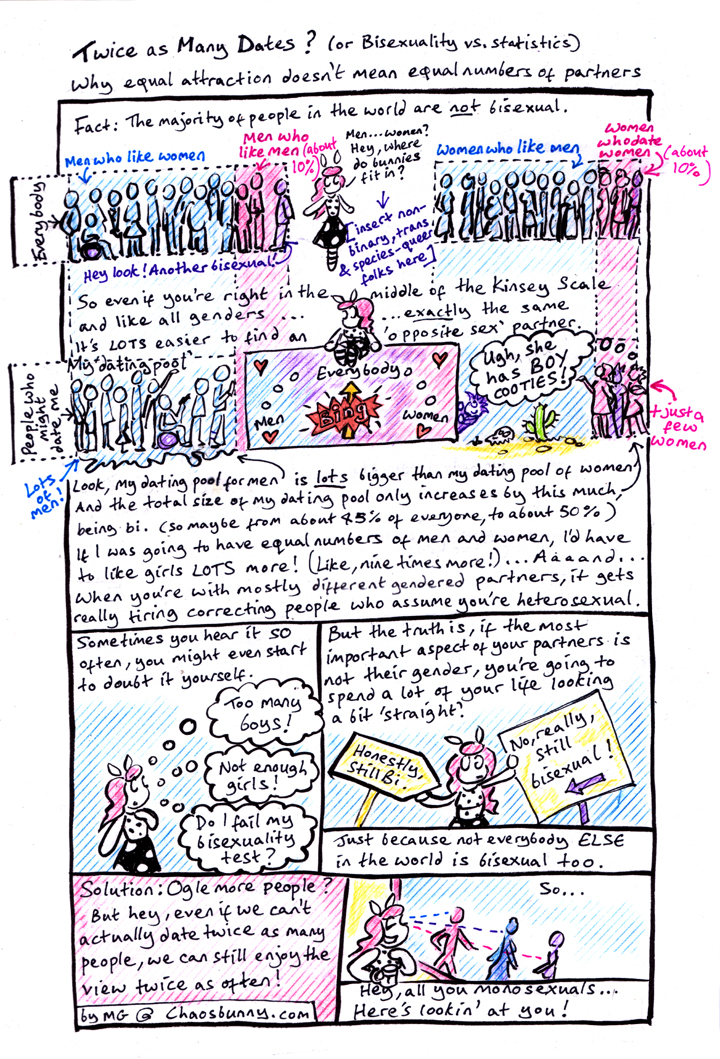 Twice as Many Dates? (or Bisexuality vs. statistics)
Why equal attraction doesn't mean equal numbers of partners
Fact: The majority of people in the world are not bisexual.
Everybody
Men who like women
Men who
like men (about
10%)
Men...women?
Hey, where
do bunnies
fit in?
[insert non-
binary, trans
& species-queer
folks here]
Women who like men
Women
who date
women
(about
10%)
Hey look! Another bisexual!
So even if you're right in the middle of the Kinsey Scale
and like all genders ... ...exactly the same
It's LOTS easier to find an 'opposite sex' partner
People who
might
date me
My 'dating pool'
Lots
of
men!
Everybody
Men
Bing
Women
Ugh, she
has BOY
COOTIES!
+ just a
few
women
Look, my dating pool for men is lots bigger than my dating pool of women
And the total size of my dating pool only increases by this much,
being bi. (so maybe from about 45% of everyone, to about 50%)
If I was going to have equal numbers of men and women, I'd have
to like girls LOTS more! (Like, nine times more!)... Aaaand...
When you're with mostly different gendered partners, it gets
really tiring correcting people who assume you're heterosexual.
Sometimes you hear it SO
often, you might even start
to doubt it yourself.
Too many
boys!
Not enough
girls!
Do I fail my
bisexuality
test?
But the truth is, if the most
important aspect of your partners is
not their gender, you're going to
spend a lot of your life looking
a bit 'straight'.
Honestly,
Still Bi.
No, really,
still
bisexual!
Just because not everybody ELSE
in the world is bisexual too.
Solution: Ogle more people?
But hey, even if we can't
actually date twice as many
people, we can still enjoy the
view twice as often!
by MG @ Chaosbunny.com
So...
Hey, all you monosexuals...
Here's lookin' at you!